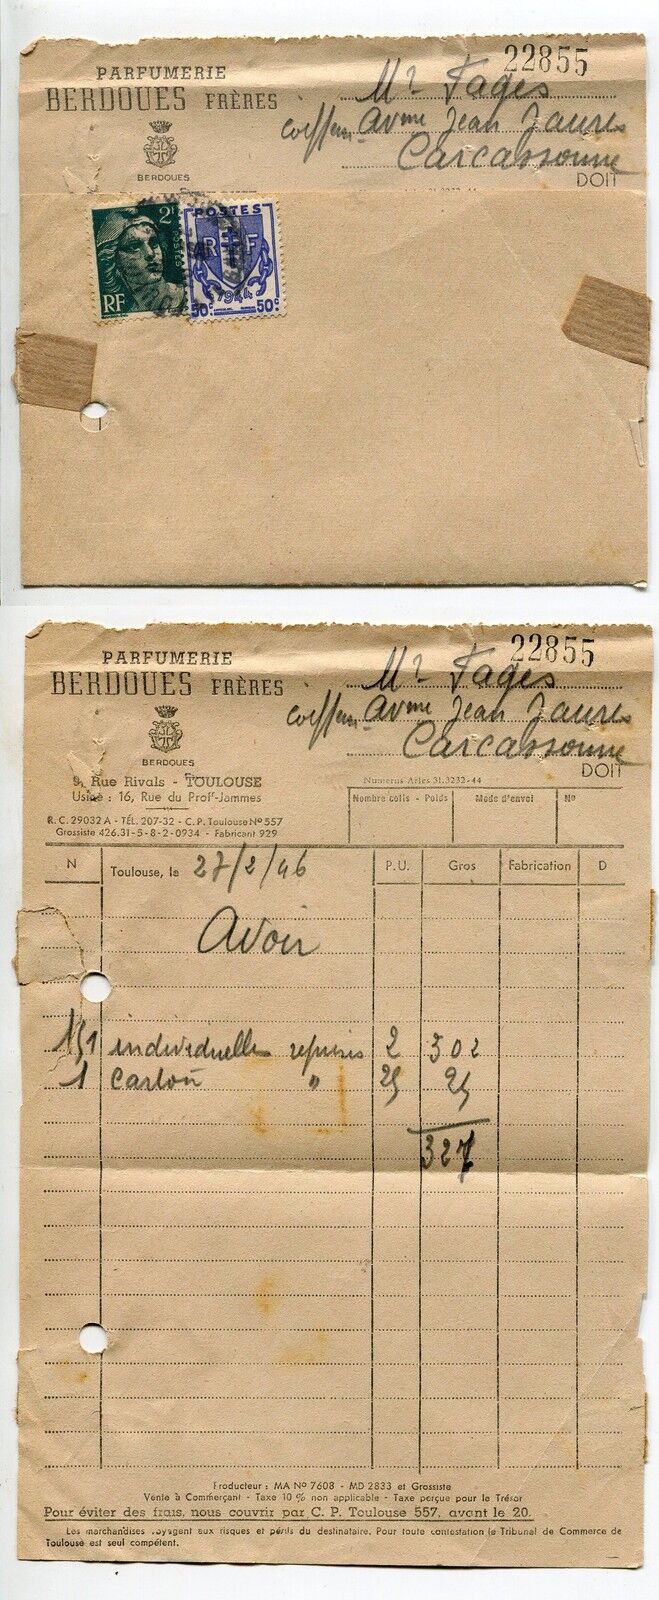 22855
PARFUMERIE
BERDOUES FRÈRES
Mr Fages
coiffeur avnue Jean Jaures
Carcassonne
BERDOUES
DOIT
2F
POSTES
RF
POSTES
R F
1944
50c 50c
22855
PARFUMERIE
BERDOUES FRÈRES
Mr Fages
coiffeur avnue Jean Jaures
Carcassonne
BERDOUES
DOIT
9, Rue Rivals - TOULOUSE
Usine : 16, Rue du Proff-Jammes
Numerus Arles 31.3232-44
Nombre colis - Poids Mode d'envoi No
R. C. 29032 A - TÉL. 207-32 - C. P. Toulouse No 557
Grossiste 426.31-5-8-2-0934 - Fabricant 929
N Toulouse, le 27/2/46 P. U. Gros Fabrication D
Avoir
151 individuelles reprises 2 302
1 carton " 25 25
327
Producteur : MA No 7608 - MD 2833 et Grossiste
Vente à Commerçant - Taxe 10 % non applicable - Taxe perçue pour le Trésor
Pour éviter des frais, nous couvrir par C. P. Toulouse 557, avant le 20.
Les marchandises voyagent aux risques et périls du destinataire. Pour toute contestation le Tribunal de Commerce de
Toulouse est seul compétent.